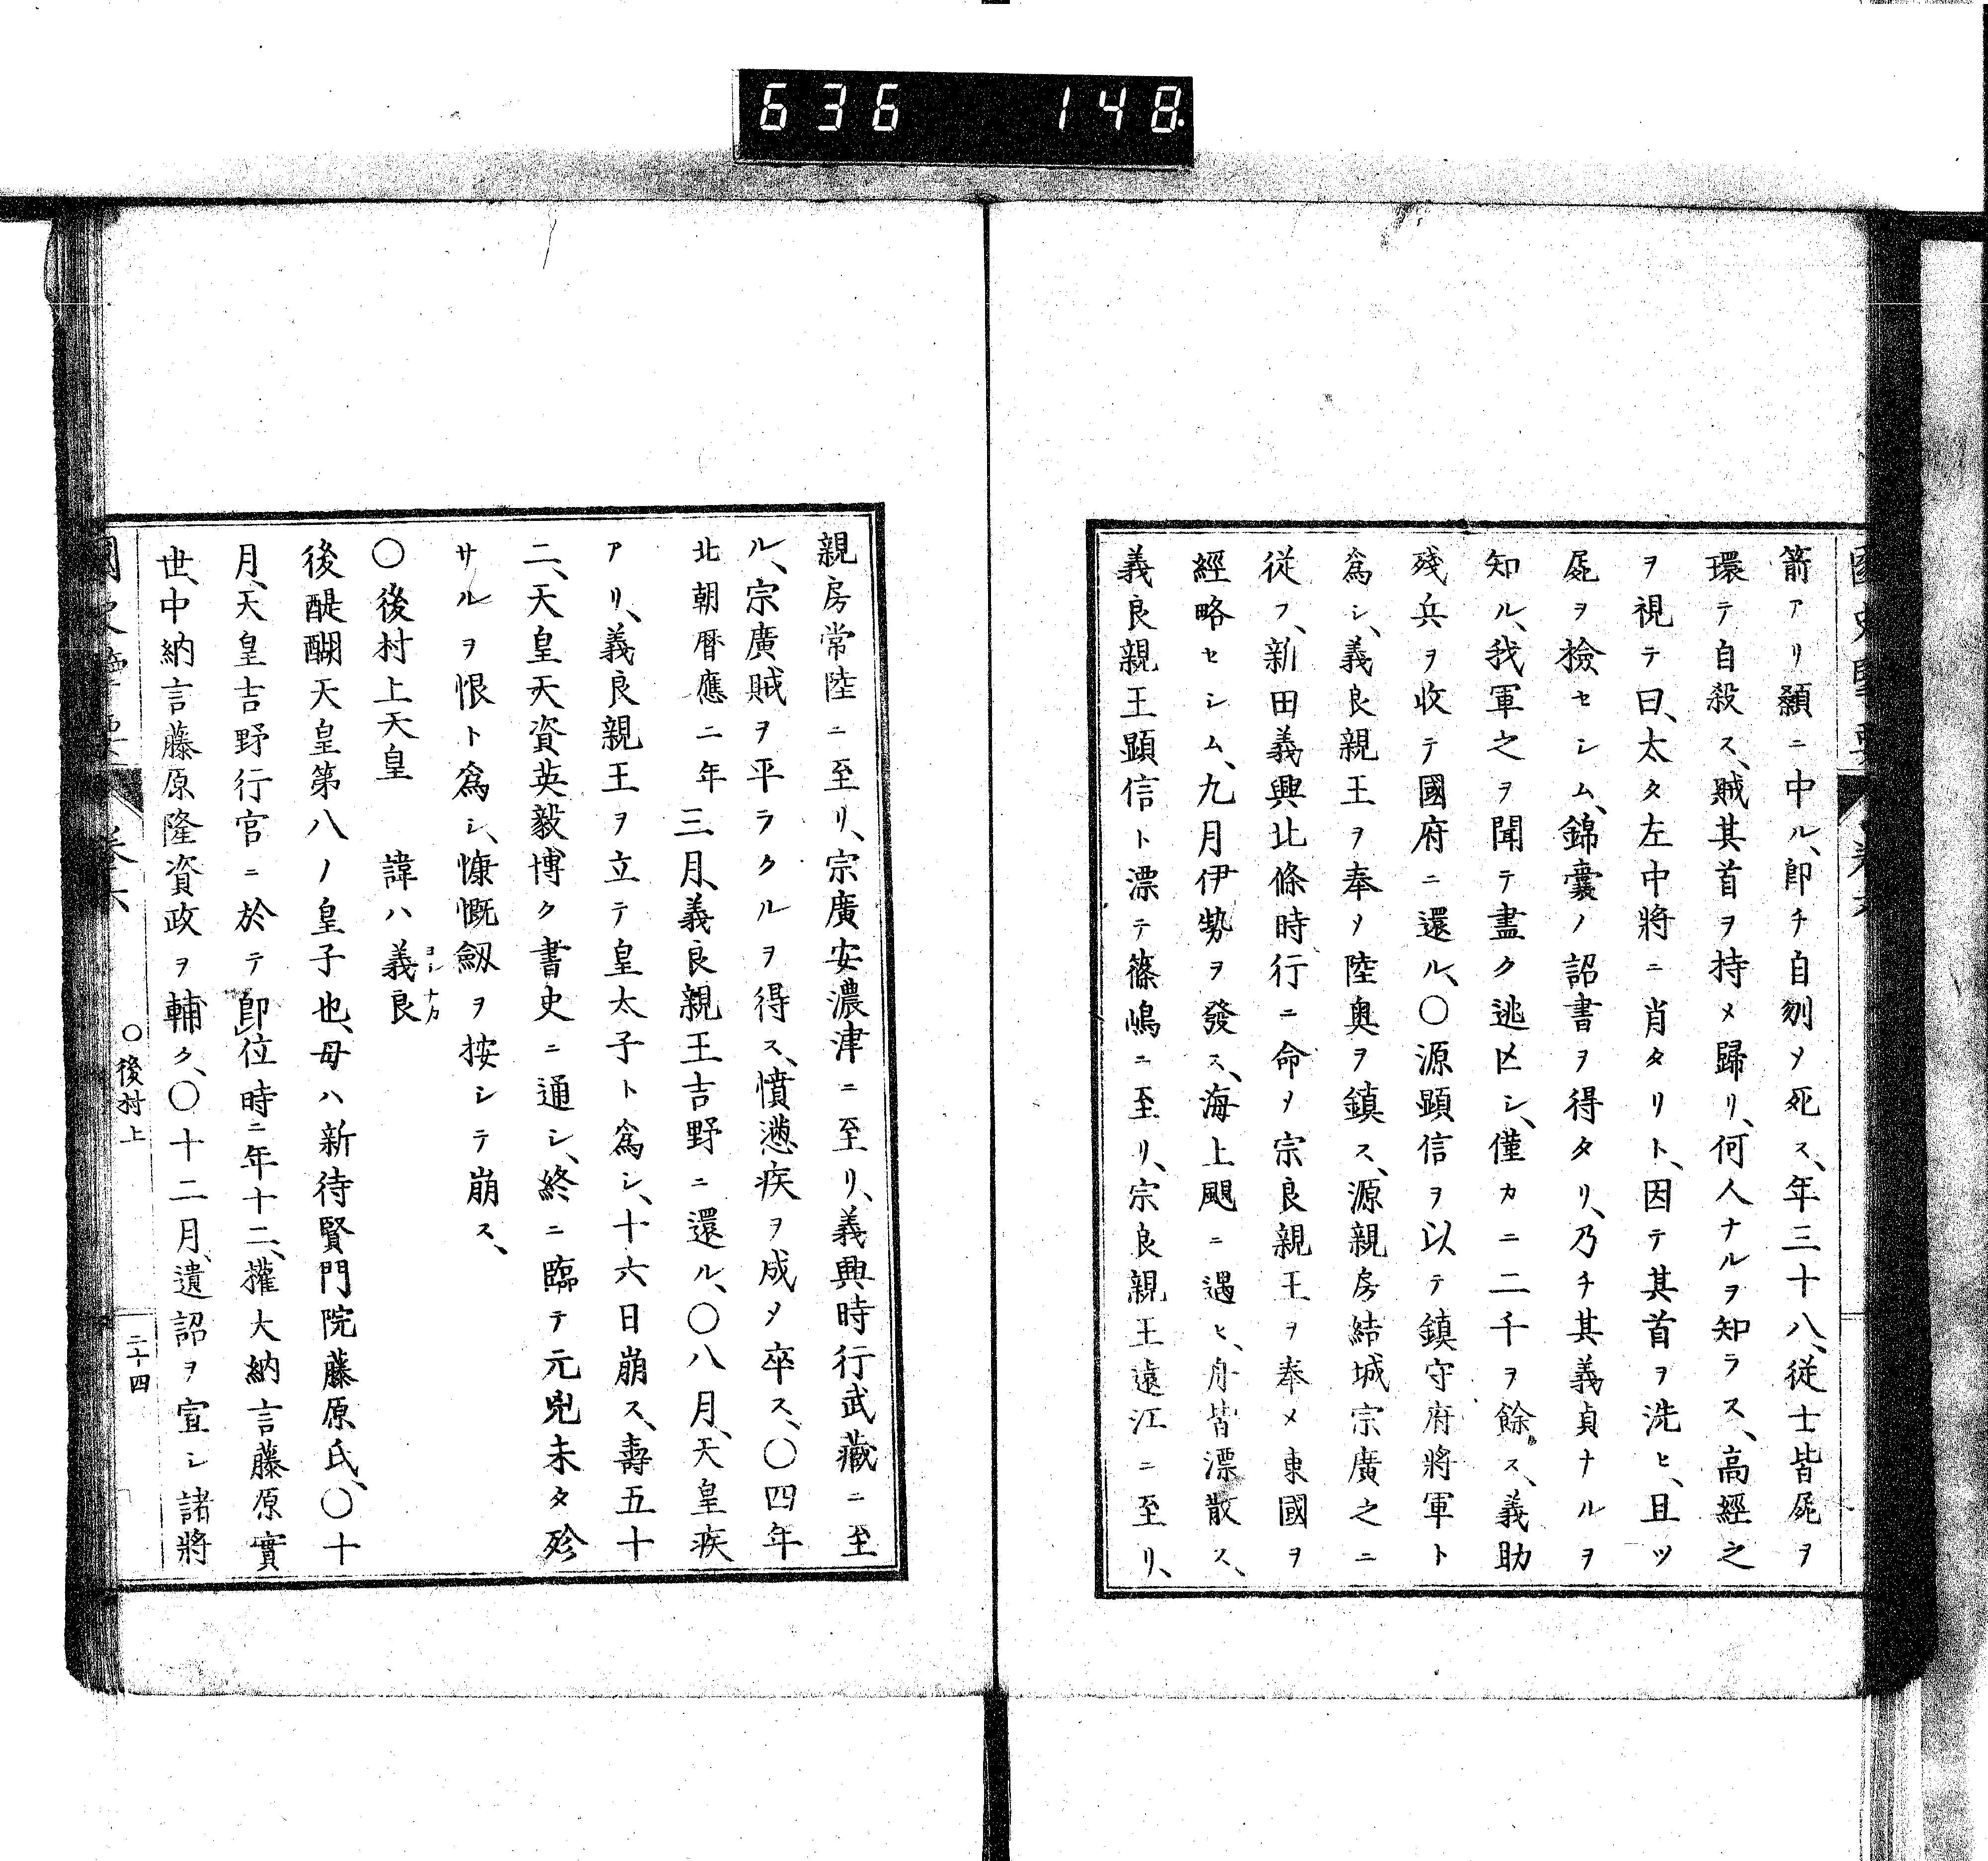 636 148
箭アリ額ニ中ル、卽チ自刎メ死ス、年三十八、従士皆屍ヲ
環テ自殺ス、賊其首ヲ持メ歸リ、何人ナルヲ知ラス、高經之
ヲ視テ曰、太タ左中將ニ肖タリト、因テ其首ヲ洗ヒ、且ツ
屍ヲ撿セシム、錦囊ノ詔書ヲ得タリ、乃チ其義貞ナルヲ
知ル、我軍之ヲ聞テ盡ク逃亡シ、僅カニ二千ヲ餘ス、義助
殘兵ヲ收テ國府ニ還ル、〇源顕信ヲ以テ鎮守府將軍ト
爲シ、義良親王ヲ奉メ陸奥ヲ鎮ス、源親房結城宗廣之ニ
従フ、新田義興北條時行ニ命メ宗良親王ヲ奉メ東國ヲ
經略セシム、九月伊勢ヲ發ス、海上颶ニ遇ヒ、舟皆漂散ス、
義良親王顕信ト漂テ篠嶋ニ至リ、宗良親王遠江ニ至リ、
親房常陸ニ至リ、宗廣安濃津ニ至リ、義興時行武藏ニ至
ル、宗廣賊ヲ平ラクルヲ得ス、憤懣疾ヲ成メ卒ス、〇四年
北朝暦應二年三月、義良親王吉野ニ還ル、〇八月、天皇疾
アリ、義良親王ヲ立テ皇太子ト爲シ、十六日崩ス、壽五十
二、天皇天資英毅博ク書史ニ通シ、終ニ臨テ元兇未タ殄
サルヲ恨ト爲シ、慷慨劔ヲ按シテ崩ス、
〇後村上天皇 諱ハ義良ヨシナカ
後醍醐天皇第八ノ皇子也、母ハ新待賢門院藤原氏、〇十
月、天皇吉野行宮ニ於テ卽位時ニ年十二、權大納言藤原實
世、中納言藤原隆資政ヲ輔ク、〇十二月、遺詔ヲ宣シ諸將
〇後村上
二十四